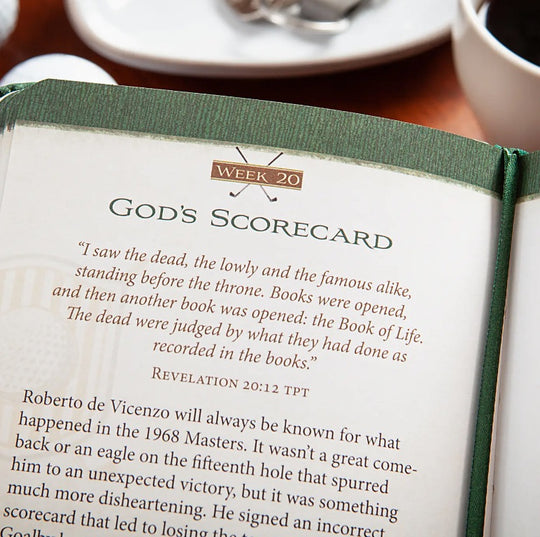 WEEK 20
GOD'S SCORECARD
“I saw the dead, the lowly and the famous alike,
standing before the throne. Books were opened,
and then another book was opened: the Book of Life.
The dead were judged by what they had done as
recorded in the books.”
REVELATION 20:12 TPT
Roberto de Vicenzo will always be known for what
happened in the 1968 Masters. It wasn’t a great come-
back or an eagle on the fifteenth hole that spurred
him to an unexpected victory, but it was something
much more disheartening. He signed an incorrect
scorecard that led to losing the